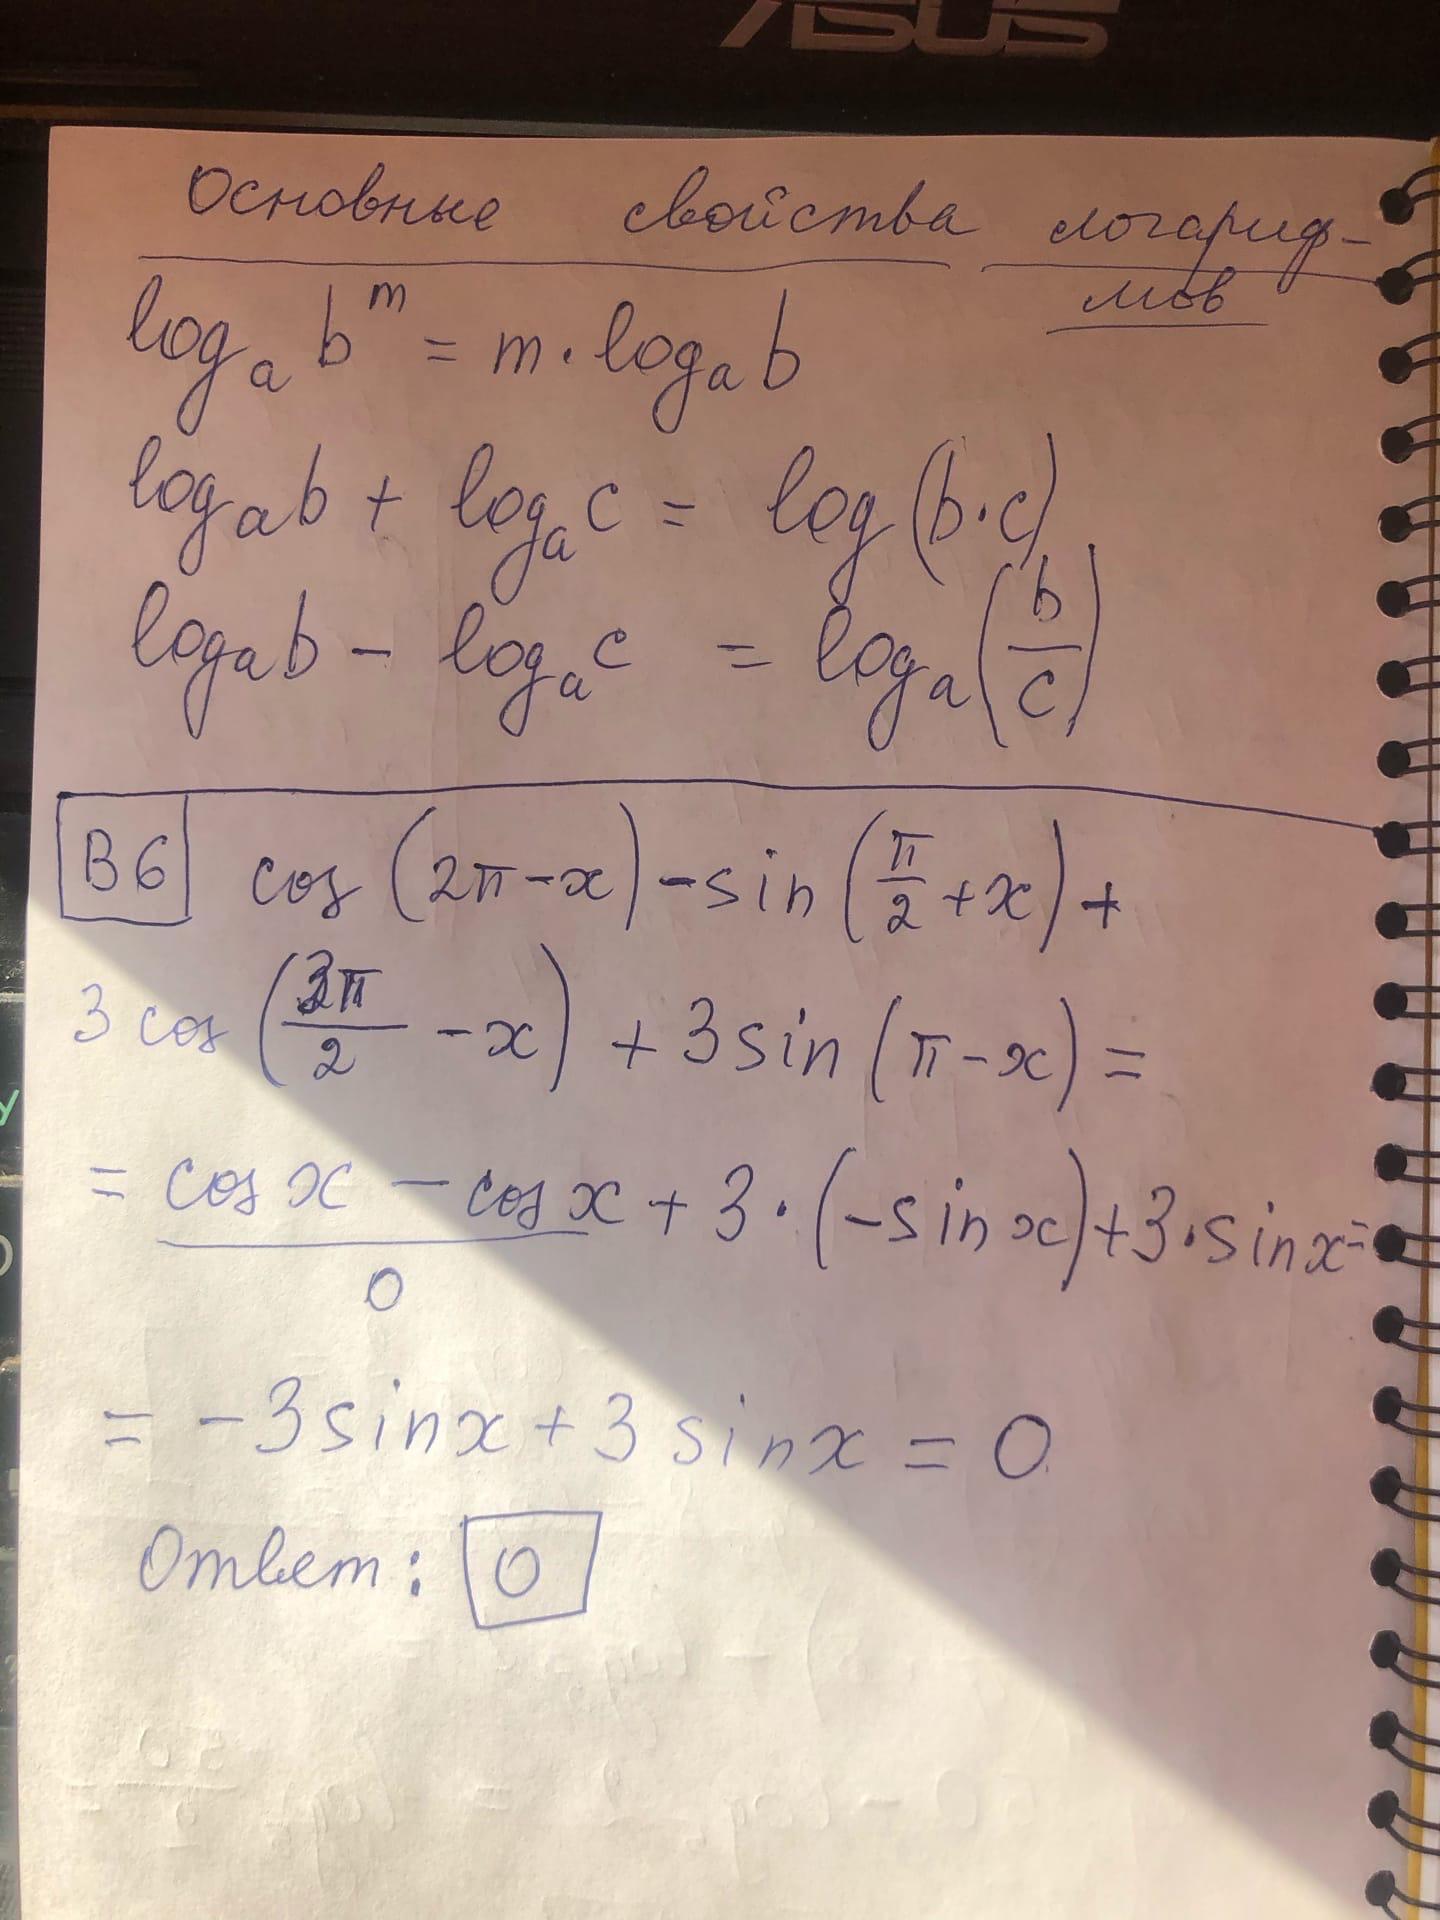 ASUS
Основные свойства логариф-
мов
log_a b^m = m · log_a b
log_a b + log_a c = log (b · c)
log_a b - log_a c = log_a (b/c)
B6 cos (2π - x) - sin (π/2 + x) +
3 cos (3π/2 - x) + 3 sin (π - x) =
= cos x - cos x + 3 · (-sin x) + 3 · sin x =
0
= -3 sin x + 3 sin x = 0
Ответ: 0